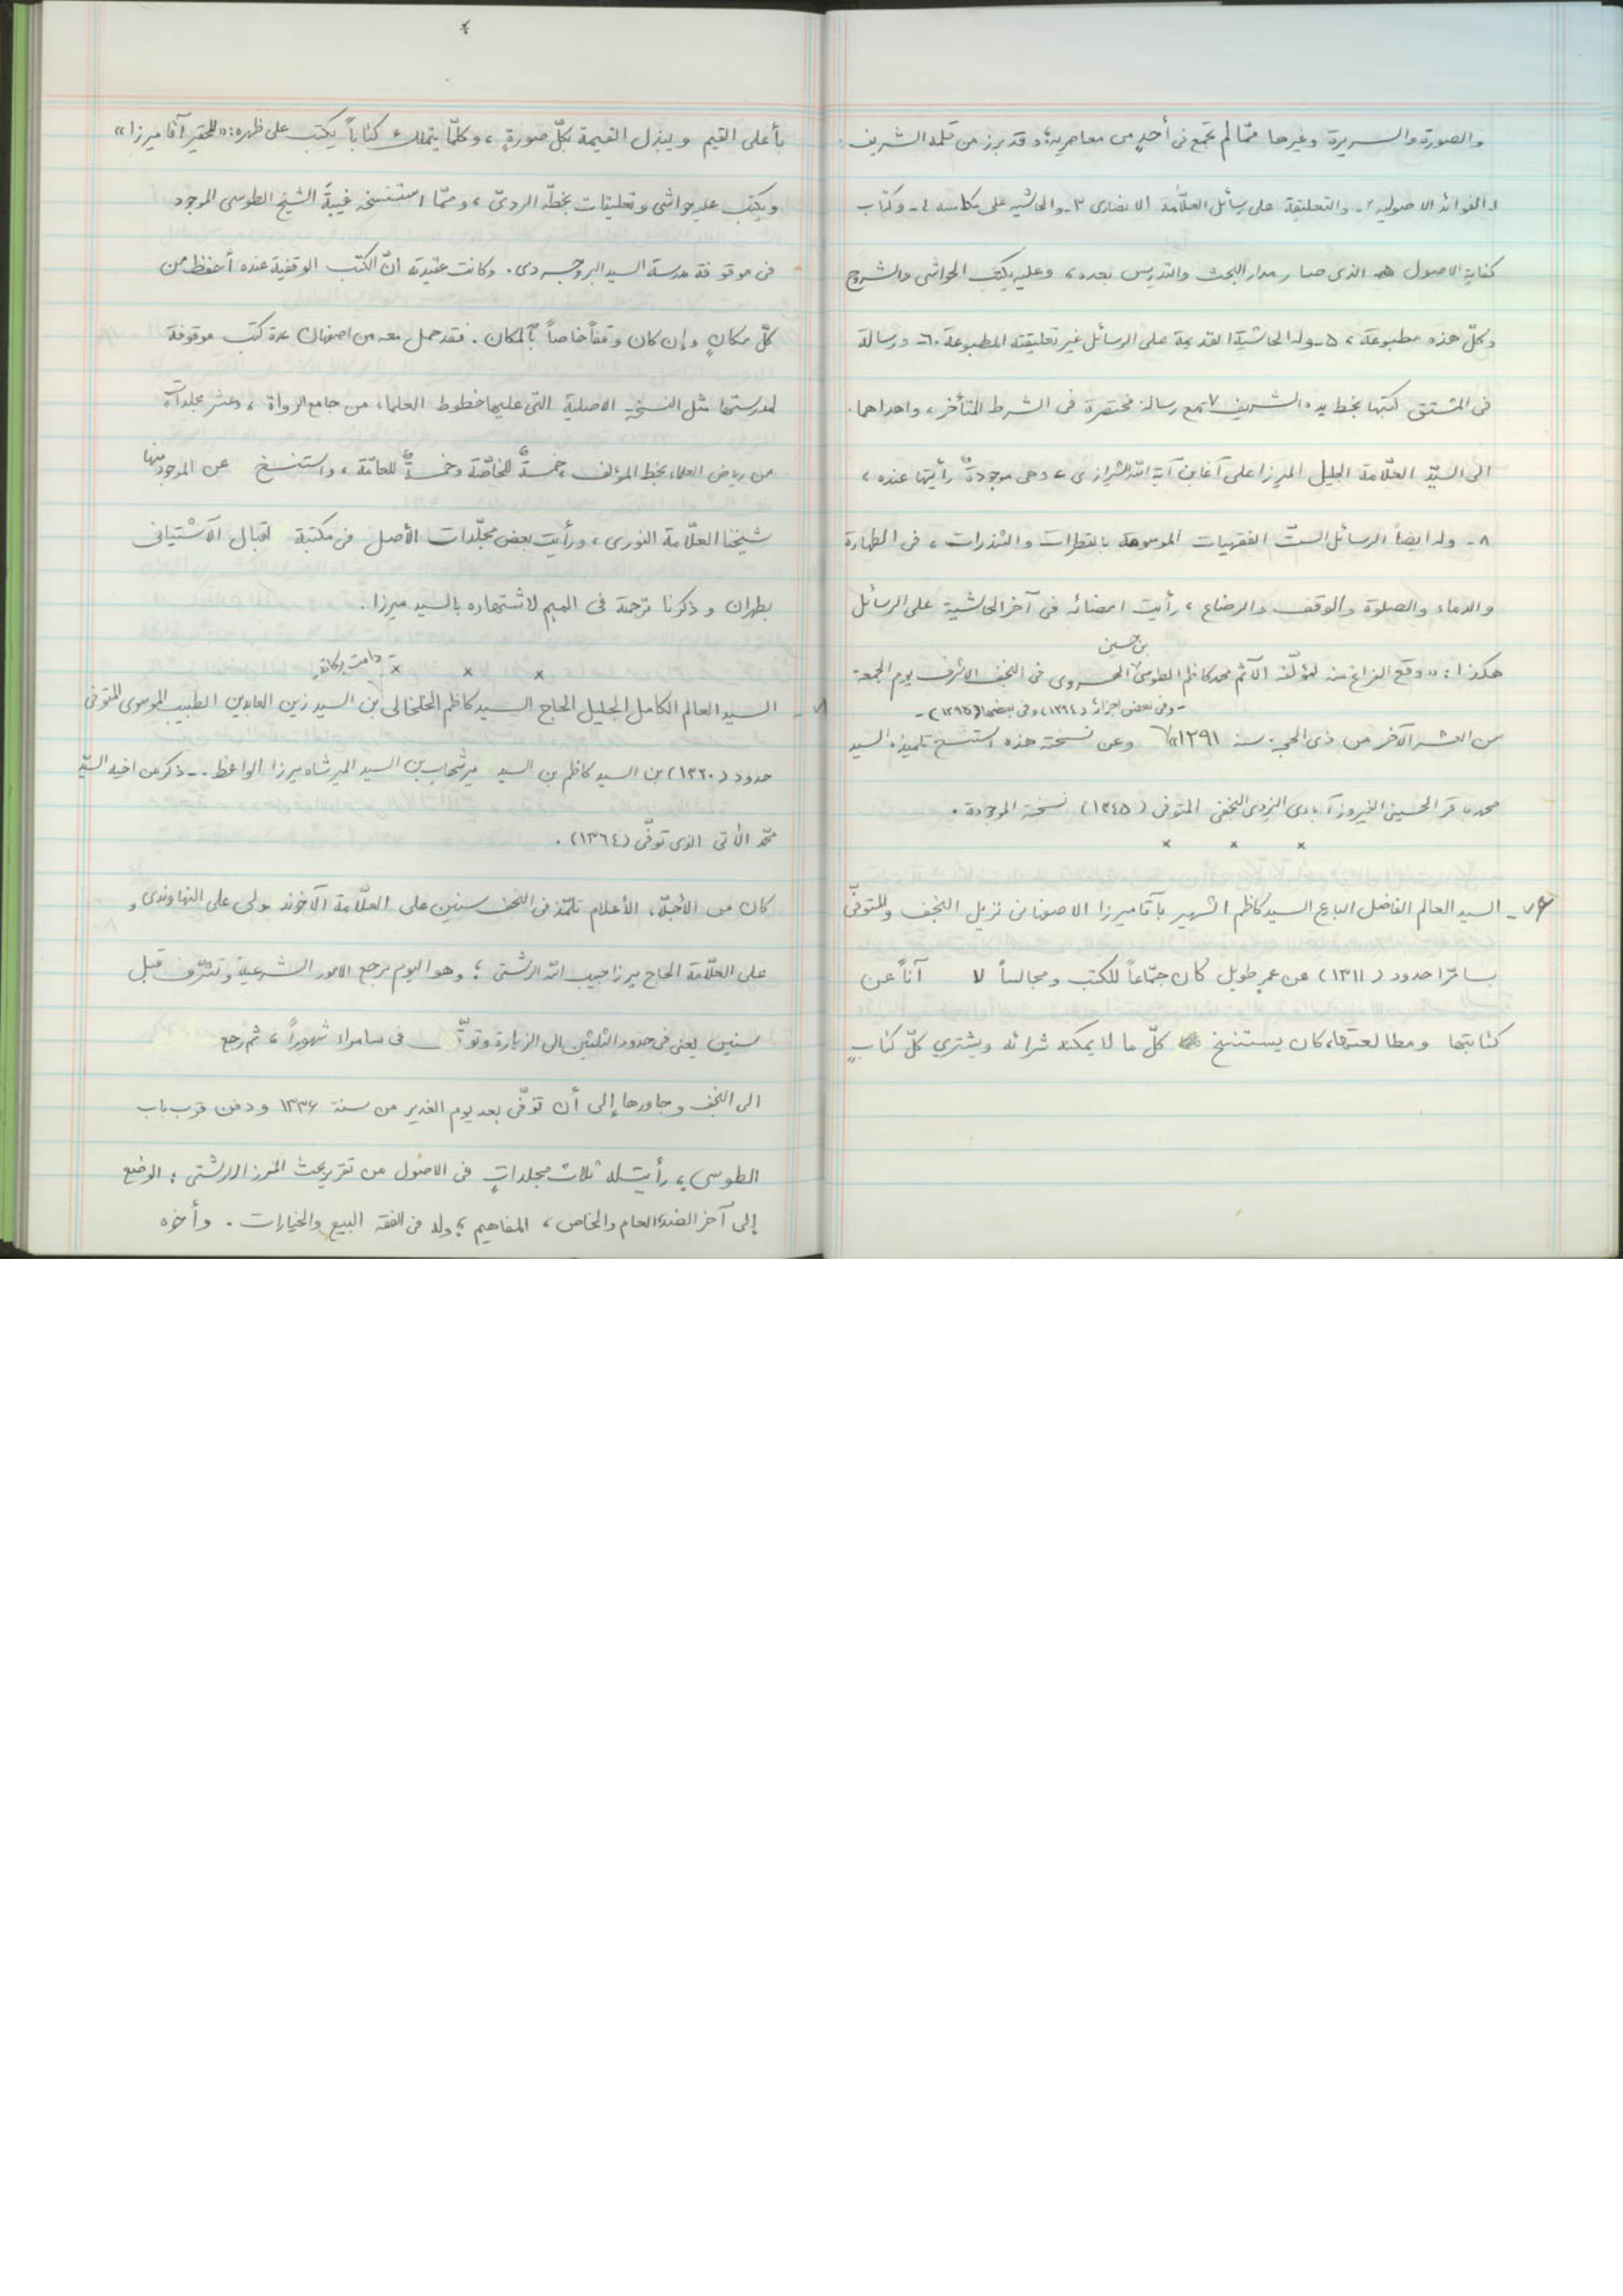 والصورة والسريرة وغيرها ممّا لم تجمع فى أحدٍ من معاصريه؛ وقد برز من قلمه الشريف:
١ـ الفوائد الاصوليه ٢ـ والتعليقة على رسائل العلّامة الانصارى ٣ـ والحاشيه على مكاسبه ٤ـ وكتاب
كفاية الاصول الذى صار مدار البحث والتدريس بعده، وعليه يكتب الحواشى والشروح
وكلّ هذه مطبوعة، ٥ـ وله الحاشية القديمة على الرسائل غير تعليقته المطبوعة ٦ـ ورسالة
فى المشتق كتبها بخط يده الشريف ٧ مع رسالة مختصرة فى الشرط المتأخر، واهداهما
الى السيّد العلّامة الجليل الميرزا على آغا بن آية الله الشيرازى، وهى موجودةٌ رأيتها عنده،
٨ـ وله ايضاً الرسائل الستّ الفقهيات الموسومة بالقطرات والشذرات، فى الطهارة
والدماء والصلوة والوقف والرضاع، رأيت امضائه فى آخر الحاشية على الرسائل
بن حسين
هكذا: «وقع الفراغ منه لمؤلّفه الآثم محمد كاظم الطوسى الهروى فى النجف الاشرف يوم الجمعة
ـ وفى بعض اجزائه (١٢٩٤) وفى بعضها (١٢٩٥) ـ
من العشر الآخر من ذى الحجة سنة ١٢٩١» وعن نسخته هذه استنسخ تلميذه السيد
محمد باقر الحسينى الفيروزآبادى اليزدى النجفى المتوفى (١٣٤٥) نسخته الموجودة.
× × ×
٧ـ السيد العالم الفاضل البارع السيد كاظم الشهير بآقا ميرزا الاصفهانى نزيل النجف والمتوفّى
بسامرّا حدود (١٣١١) عن عمرٍ طويل كان جمّاعاً للكتب ومجالساً لا آناً عن
كتابتها ومطالعتها، كان يستنسخ كلّ ما لا يمكنه شرائه ويشتري كلّ كتابٍ
بأعلى القيم ويبذل القيمة بكلّ صورةٍ، وكلّما يتملك كتاباً يكتب على ظهره: «للحقير آقا ميرزا»
ويكتب عليه حواشى وتعليقات بخطّه الردىّ، وممّا استنسخه غيبةَ الشيخ الطوسى الموجود
فى موقوفة مدرسة السيد البروجردى. وكانت عقيدته أنّ الكتب الوقفية عنده أحفظ من
كلّ مكانٍ وإن كان وقفاً خاصاً بالمكان. فقد حمل معه من اصفهان عدة كتب موقوفة
لمدرستها مثل النسخة الاصلية التى عليها خطوط العلماء من جامع الرواة، وعشر مجلدات
من رياض العلماء بخط المؤلف، خمسةٌ للخاصّة وخمسةٌ للعامّة، واستنسخ عن الموجود منها
شيخنا العلّامة النورى، ورأيت بعض مجلّدات الأصل فى مكتبة اقبال الآشتيانى
بطهران وذكرنا ترجمته فى الميم لاشتهاره بالسيد ميرزا.
× × ×
دامت بركاته
٨ـ السيد العالم الكامل الجليل الحاج السيد كاظم الخلخالى بن السيد زين العابدين الطبيب الموسوى المتوفى
حدود (١٣٢٠) بن السيد كاظم بن السيد مير شهاب بن السيد المير شاه ميرزا الواعظ ـ ذكر عن اخيه السيّد
محمّد الآتى الذى توفّى (١٣٦٤).
كان من الأجلّة الأعلام تلمّذ فى النجف سنين على العلّامة الآخوند مولى على النهاوندى و
على العلّامة الحاج ميرزا حبيب الله الرشتى؛ وهو اليوم مرجع الامور الشرعية وتشرّف قبل
سنين يعنى فى حدود الثلثين الى الزيارة فى سامراء شهوراً، ثم رجع
الى النجف وجاورها إلى أن توفّى بعد يوم الغدير من سنة ١٣٣۶ ودفن قرب باب
الطوسى، رأيت له ثلاث مجلداتٍ فى الاصول من تقرير بحث الميرزا الرشتى: الوضع
إلى آخر الضد، العام والخاص، المفاهيم؛ وله فى الفقه البيع والخيارات. وأخوه